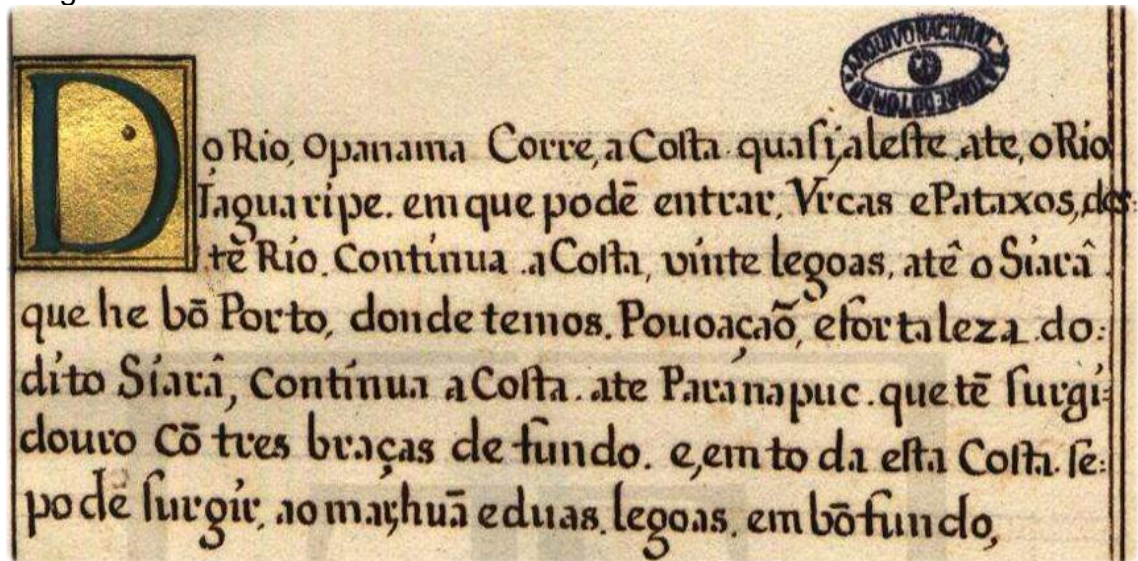 ARQUIVO NACIONAL DA TORRE DO TOMBO
Do Rio, Opanama Corre, a Costa quasi, aleste ate, o Rio
Iaguaripe. em que podē entrar, Vrcas e Pataxos, des:
tē Rio. Continua a Costa, vinte legoas, atê o Siarâ.
que he bō Porto, donde temos. Pouoaçaõ, e fortaleza do:
dito Siarâ, Continua a Costa. ate Paranapuc. que tē surgi:
douro Cō tres braças de fundo. e, em toda esta Costa. se:
podē surgir, ao mar, huā e duas. legoas. em bō fundo,